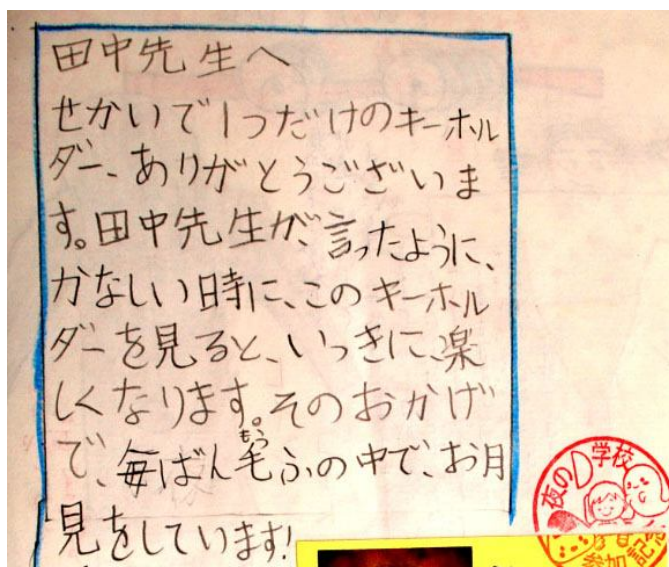 田中先生へ
せかいで1つだけのキーホル
ダー、ありがとうございま
す。田中先生が、言ったように、
かなしい時に、このキーホル
ダーを見ると、いっきに、楽
しくなります。そのおかげ
で、毎ばん毛ふの中で、お月
もう
見をしています!
夜のD学校
参加